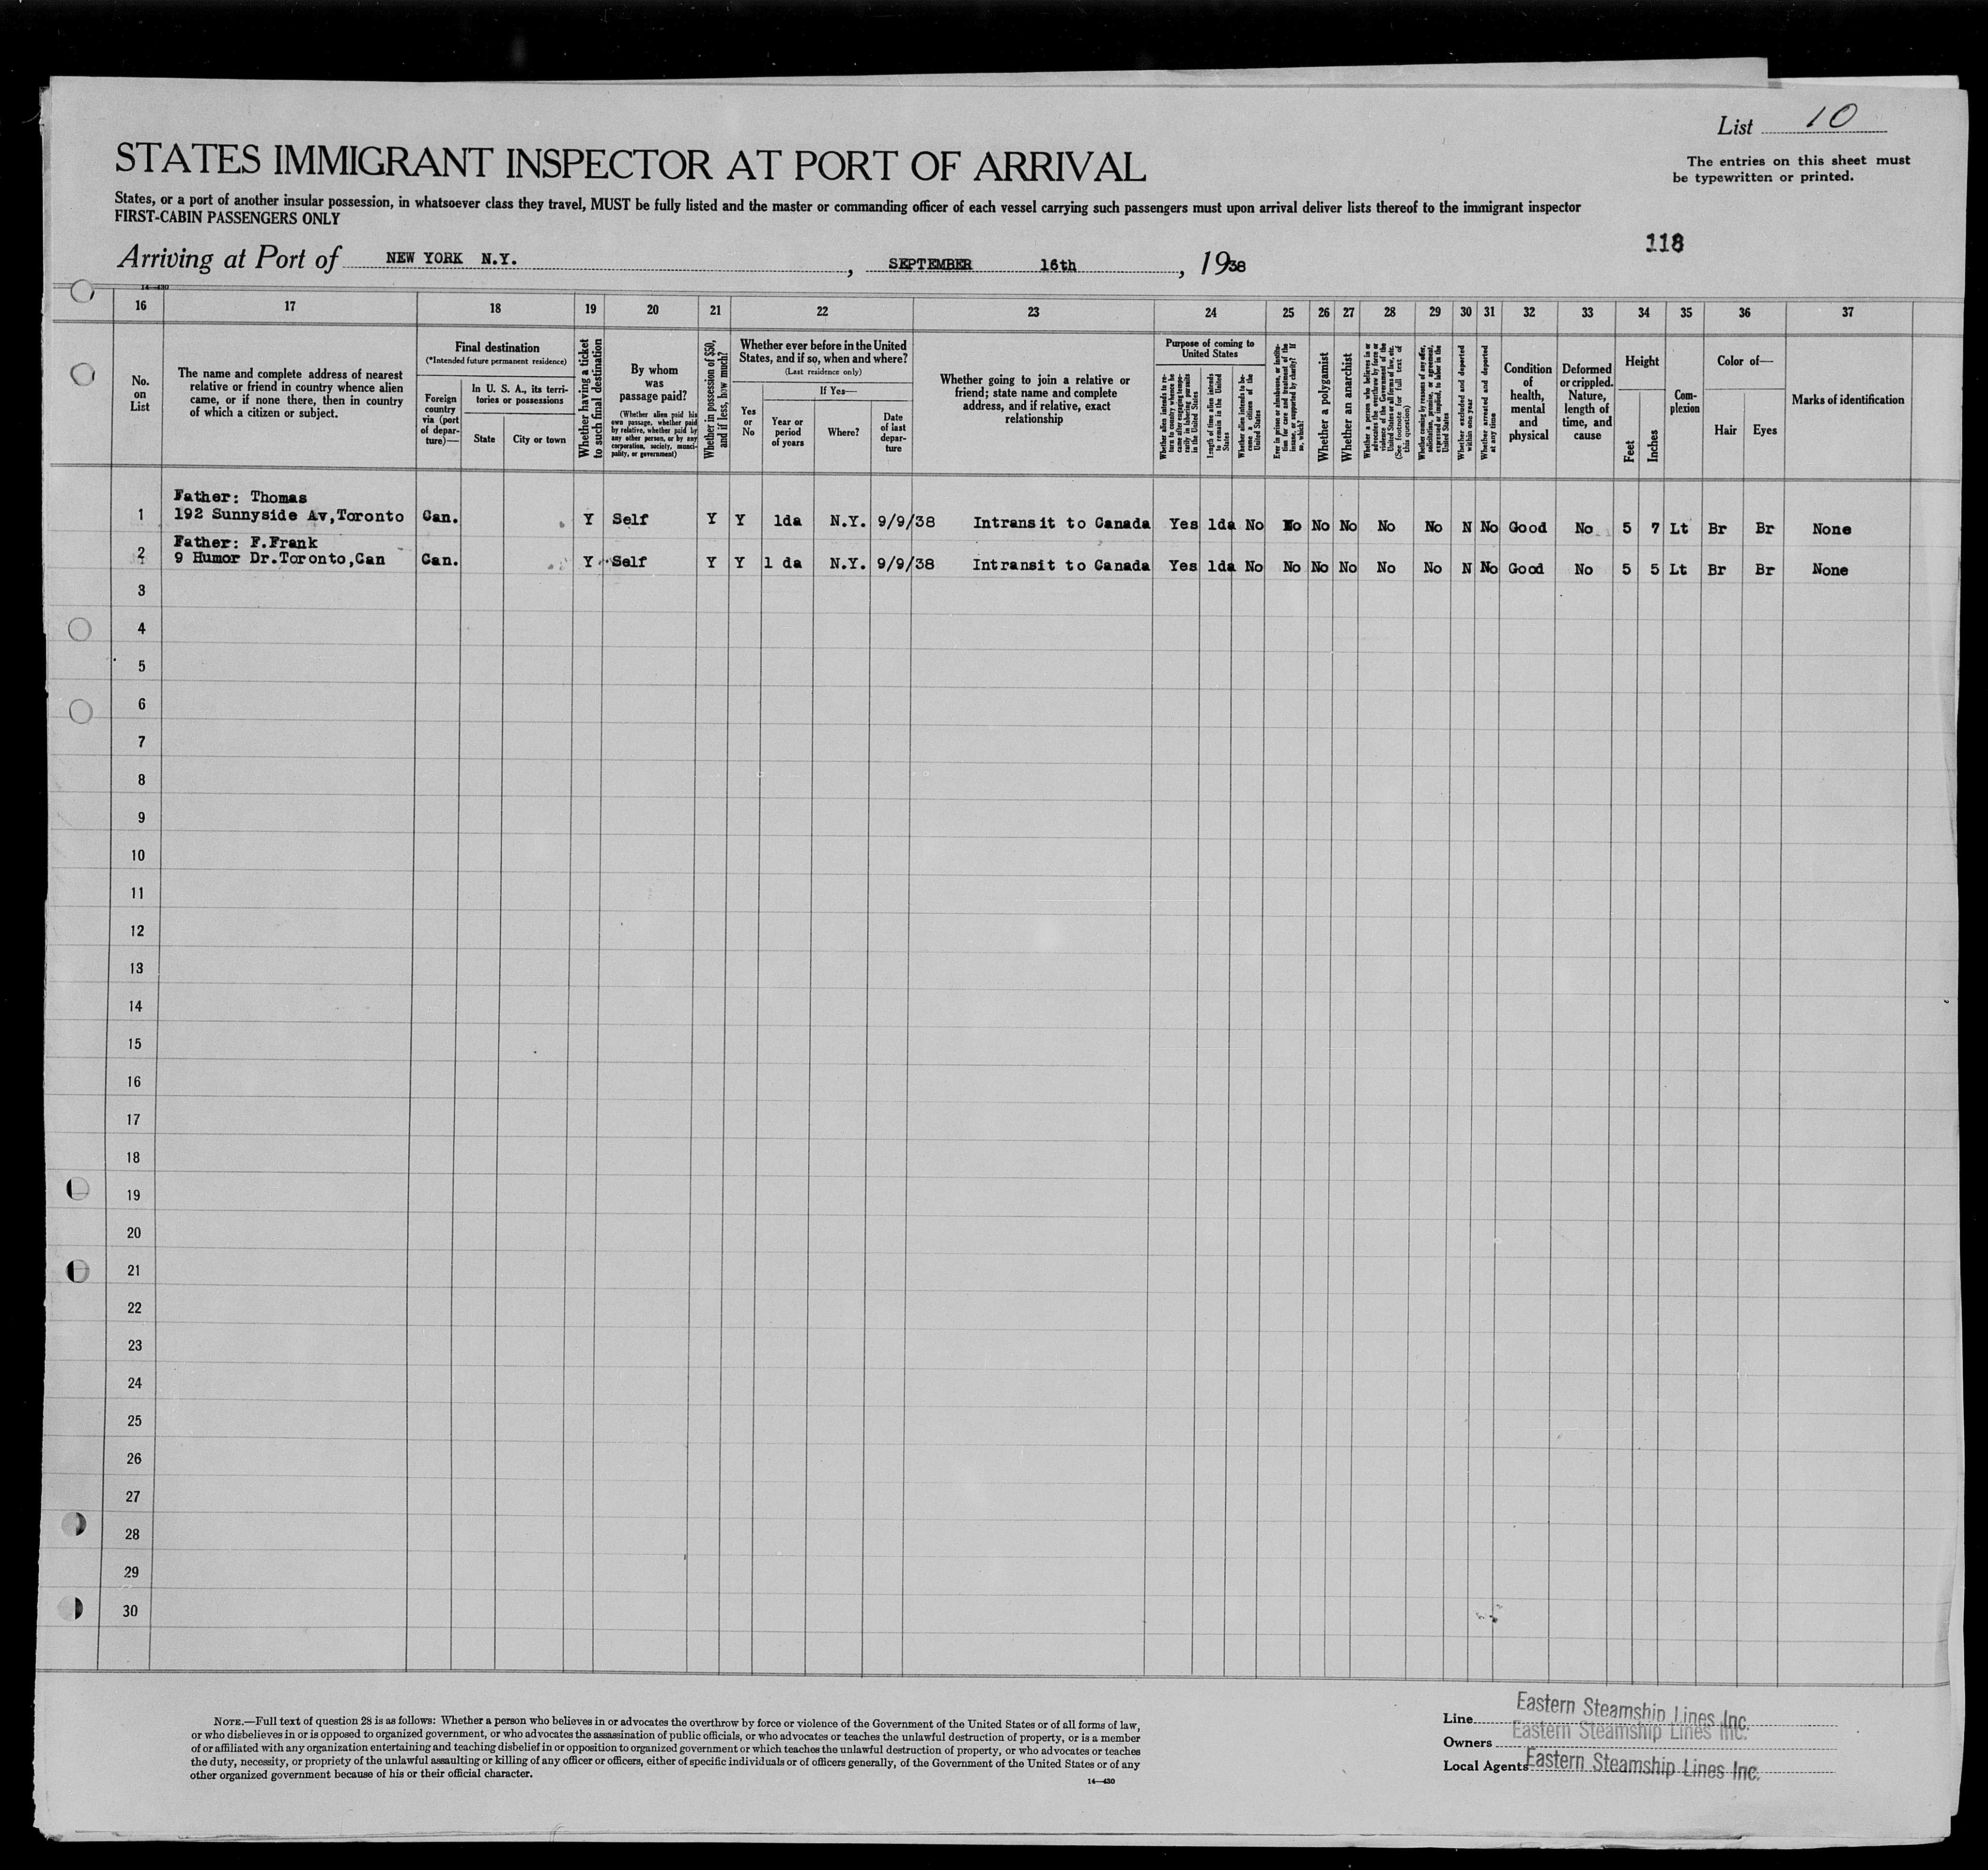 List 10
The entries on this sheet must
be typewritten or printed.
STATES IMMIGRANT INSPECTOR AT PORT OF ARRIVAL
States, or a port of another insular possession, in whatsoever class they travel, MUST be fully listed and the master or commanding officer of each vessel carrying such passengers must upon arrival deliver lists thereof to the immigrant inspector
FIRST-CABIN PASSENGERS ONLY
118
Arriving at Port of NEW YORK N.Y. , SEPTEMBER 16th , 1938
14—430
16 17 18 19 20 21 22 23 24 25 26 27 28 29 30 31 32 33 34 35 36 37
No.
on
List
The name and complete address of nearest
relative or friend in country whence alien
came, or if none there, then in country
of which a citizen or subject.
Final destination
(*Intended future permanent residence)
Foreign
country
via (port
of depar-
ture)—
In U. S. A., its terri-
tories or possessions
State
City or town
Whether having a ticket
to such final destination
By whom
was
passage paid?
(Whether alien paid his
own passage, whether paid
by relative, whether paid by
any other person, or by any
corporation, society, munici-
pality, or government)
Whether in possession of $50,
and if less, how much?
Whether ever before in the United
States, and if so, when and where?
(Last residence only)
Yes
or
No
If Yes—
Year or
period
of years
Where?
Date
of last
depar-
ture
Whether going to join a relative or
friend; state name and complete
address, and if relative, exact
relationship
Purpose of coming to
United States
Whether alien intends to re-
turn to country whence he
came after engaging tempo-
rarily in laboring pursuits
in the United States
Length of time alien intends
to remain in the United
States
Whether alien intends to be-
come a citizen of the
United States
Ever in prison or almshouse, or institu-
tion for care and treatment of the
insane, or supported by charity? If
so, which?
Whether a polygamist
Whether an anarchist
Whether a person who believes in or
advocates the overthrow by force or
violence of the Government of the
United States or all forms of law, etc.
(See footnote for full text of
this question)
Whether coming by reasons of any offer,
solicitation, promise, or agreement,
expressed or implied, to labor in the
United States
Whether excluded and deported
within one year
Whether arrested and deported
at any time
Condition
of
health,
mental
and
physical
Deformed
or crippled.
Nature,
length of
time, and
cause
Height
Feet
Inches
Com-
plexion
Color of—
Hair
Eyes
Marks of identification
Father: Thomas
1 192 Sunnyside Av,Toronto Can. Y Self Y Y 1da N.Y. 9/9/38 Intransit to Canada Yes 1da No No No No No No N No Good No 5 7 Lt Br Br None
Father: F.Frank
2 9 Humor Dr.Toronto,Can Can. Y Self Y Y 1 da N.Y. 9/9/38 Intransit to Canada Yes 1da No No No No No No N No Good No 5 5 Lt Br Br None
3
4
5
6
7
8
9
10
11
12
13
14
15
16
17
18
19
20
21
22
23
24
25
26
27
28
29
30
NOTE.—Full text of question 28 is as follows: Whether a person who believes in or advocates the overthrow by force or violence of the Government of the United States or of all forms of law,
or who disbelieves in or is opposed to organized government, or who advocates the assassination of public officials, or who advocates or teaches the unlawful destruction of property, or is a member
of or affiliated with any organization entertaining and teaching disbelief in or opposition to organized government or which teaches the unlawful destruction of property, or who advocates or teaches
the duty, necessity, or propriety of the unlawful assaulting or killing of any officer or officers, either of specific individuals or of officers generally, of the Government of the United States or of any
other organized government because of his or their official character.
14—430
Line Eastern Steamship Lines Inc.
Owners Eastern Steamship Lines Inc.
Local Agents Eastern Steamship Lines Inc.